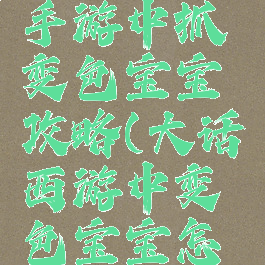 手游中抓
变色宝宝
攻略(大话
西游中变
色宝宝怎